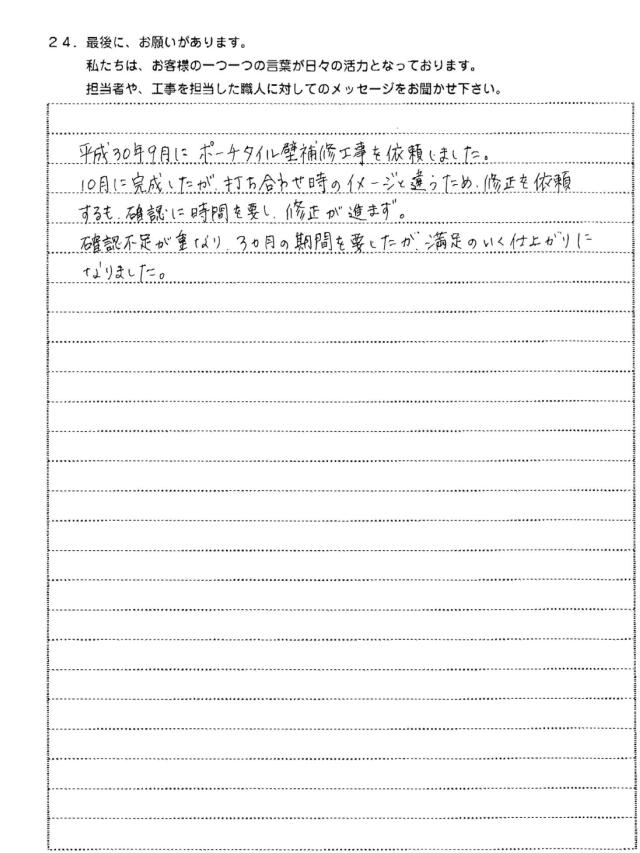 ２４．最後に、お願いがあります。
私たちは、お客様の一つ一つの言葉が日々の活力となっております。
担当者や、工事を担当した職人に対してのメッセージをお聞かせ下さい。
平成30年9月に ポーチタイル壁補修工事を依頼しました。
10月に完成したが、打ち合わせ時のイメージと違うため、修正を依頼
するも、確認に時間を要し、修正が進まず。
確認不足が重なり、3ヵ月の期間を要したが、満足のいく仕上がりに
なりました。